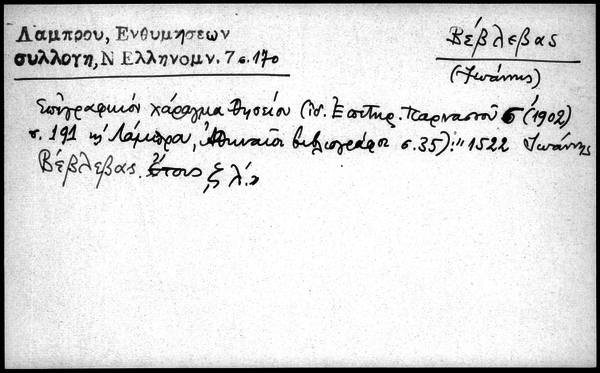 Λαμπρου, Ενθυμησεων
συλλογη, Ν Ελληνομν. 7 σ. 170
Βέβλεβας
(Ἰωάννης)
Ἐπιγραφικὸν χάραγμα Θησείου (ἰδ. Ἐπετηρ. Παρνασσοῦ ς΄ (1902)
σ. 191 κ' Λάμπρου, Ἀθηναῖοι βιβλιογράφοι σ. 35): "1522 Ἰωάννης
Βέβλεβας. ἔτους ζλ.»